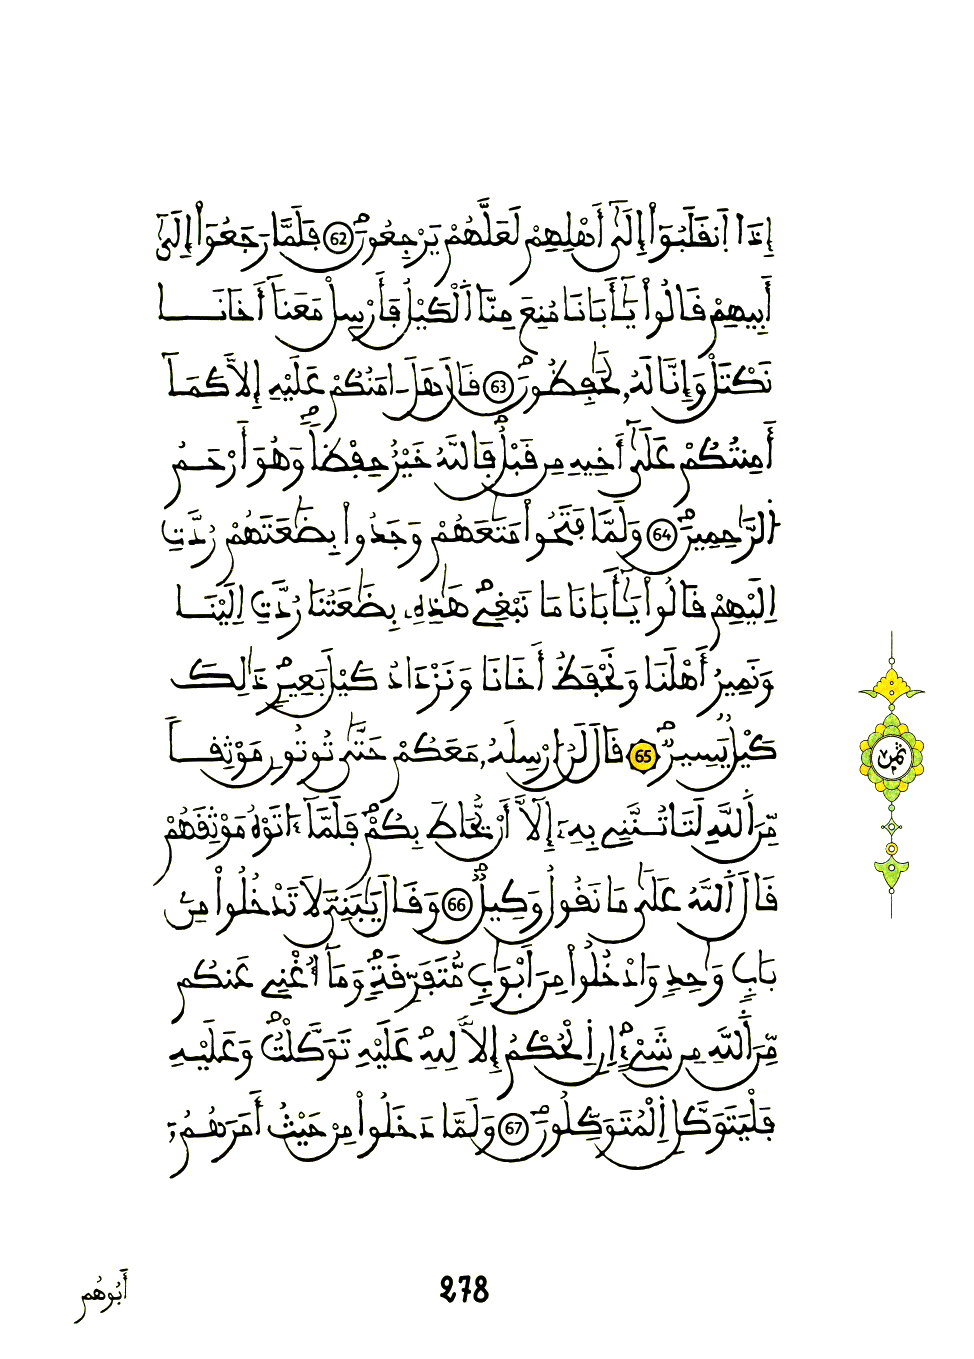 إِذَا اَنقَلَبُوٓاْ إِلَىٰٓ أَهْلِهِمْ لَعَلَّهُمْ يَرْجِعُونَۖ 62 فَلَمَّا رَجَعُوٓاْ إِلَىٰٓ
أَبِيهِمْ قَالُواْ يَٰٓأَبَانَا مُنِعَ مِنَّا اَ۬لْكَيْلُ فَأَرْسِلْ مَعَنَآ أَخَانَا
نَكْتَلْ وَإِنَّا لَهُۥ لَحَٰفِظُونَۖ 63 قَالَ هَلَ اٰمَنُكُمْ عَلَيْهِ إِلَّا كَمَآ
أَمِنتُكُمْ عَلَىٰٓ أَخِيهِ مِن قَبْلُۖ فَاللَّهُ خَيْرٌ حِفْظاًۖ وَهُوَ أَرْحَمُ
اُ۬لرَّٰحِمِينَۖ 64 وَلَمَّا فَتَحُواْ مَتَٰعَهُمْ وَجَدُواْ بِضَٰعَتَهُمْ رُدَّتِ
اِلَيْهِمْ قَالُواْ يَٰٓأَبَانَا مَا نَبْغِےۖ هَٰذِهِۦ بِضَٰعَتُنَا رُدَّتِ اِلَيْنَا
وَنَمِيرُ أَهْلَنَا وَنَحْفَظُ أَخَانَا وَنَزْدَادُ كَيْلَ بَعِيرٖۖ ذَٰلِكَ
كَيْلٞ يَسِيرٞۖ 65 قَالَ لَنُ ا۟رْسِلَهُۥ مَعَكُمْ حَتَّىٰ تُوتُونِ مَوْثِقاٗ
مِّنَ اَ۬للَّهِ لَتَاتُنَّنِے بِهِۦٓ إِلَّآ أَنْ يُّحَاطَ بِكُمْۖ فَلَمَّآ ءَاتَوْهُ مَوْثِقَهُمْ
قَالَ اَ۬للَّهُ عَلَىٰ مَا نَقُولُ وَكِيلٞۖ 66 وَقَالَ يَٰبَنِيَّ لَا تَدْخُلُواْ مِنۢ
بَابٖ وَٰحِدٖ وَادْخُلُواْ مِنَ اَبْوَٰبٖ مُّتَفَرِّقَةٖۖ وَمَآ أُغْنِے عَنكُم
مِّنَ اَ۬للَّهِ مِن شَےْءٍۖ اِنِ اِ۬لْحُكْمُ إِلَّا لِلهِۖ عَلَيْهِ تَوَكَّلْتُۖ وَعَلَيْهِ
فَلْيَتَوَكَّلِ اِ۬لْمُتَوَكِّلُونَۖ 67 وَلَمَّا دَخَلُواْ مِنْ حَيْثُ أَمَرَهُمُۥٓ
ثمن
أَبُوهُم
278